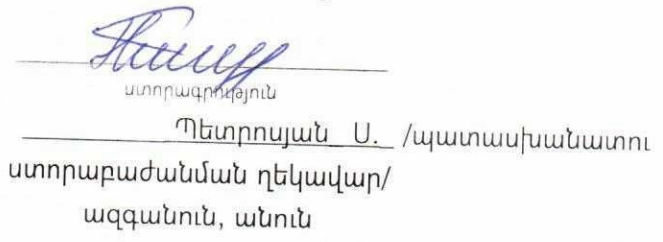 ստորագրություն
Պետրոսյան Ս. /պատասխանատու
ստորաբաժանման ղեկավար/
ազգանուն, անուն